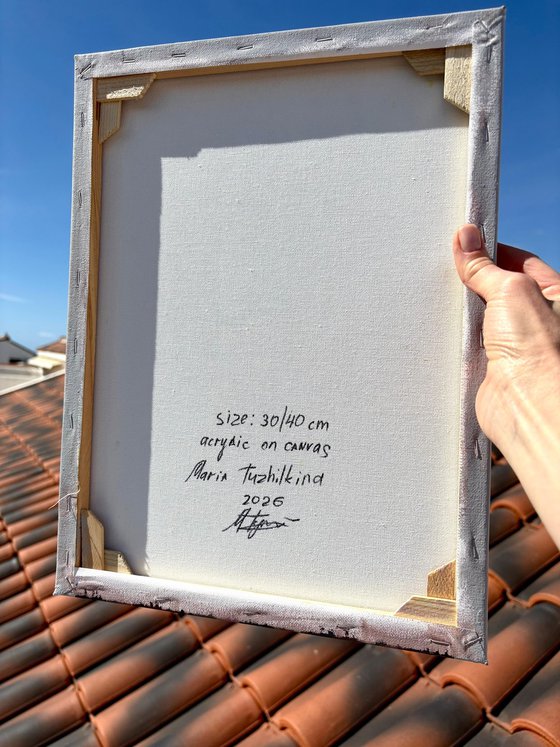 size: 30/40 cm
acrylic on canvas
Maria Tuzhilkina
2026